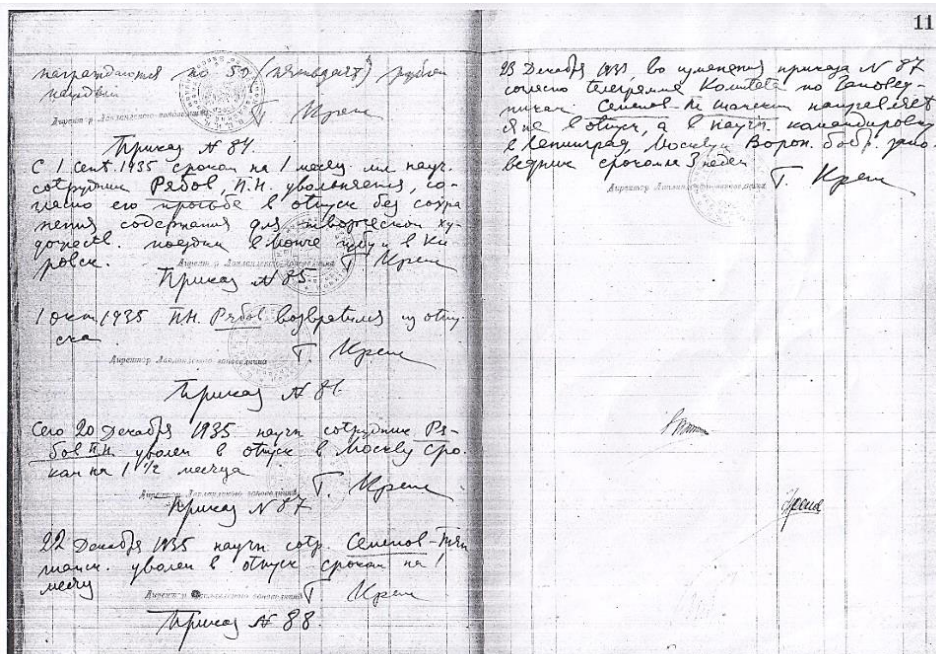 11
награждаются по 50 (пятьдесят) рублей
каждый
Директор Лапландского заповедника Г. Крепс
Приказ № 84.
С 1 сент. 1935 сроком на 1 месяц науч.
сотрудник Рябов, П.Н. увольняется, со-
гласно его просьбе в отпуск без сохра-
нения содержания для творческой ху-
дожеств. поездки в Монче губу и в Ки-
ровск.
Директор Лапландского заповедника Г. Крепс
Приказ № 85
1 окт 1935 П.Н. Рябов возвратился из отпу-
ска
Директор Лапландского заповедника
Г. Крепс
Приказ № 86.
Сего 20 Декабря 1935 научн сотрудник Ря-
бов П.Н. уволен в отпуск в Москву сро-
ком на 1 1/2 месяца
Директор Лапландского заповедника Г. Крепс
Приказ № 87
22 Декабря 1935 научн сотр. Семенов-Тян
шанск. уволен в отпуск сроком на 1
месяц
Директор Лапландского заповедника Г Крепс
Приказ № 88.
23 Декабря 1935, во изменения приказа № 87
согласно телеграмме Комитета по Заповед-
никам Семенов-Т шанский направляет
ся не в отпуск, а в научн. командировку
в Ленинград, Москву и Ворон. бобр. запо-
ведник сроком на 3 недел
Директор Лапландского заповедника Г. Крепс